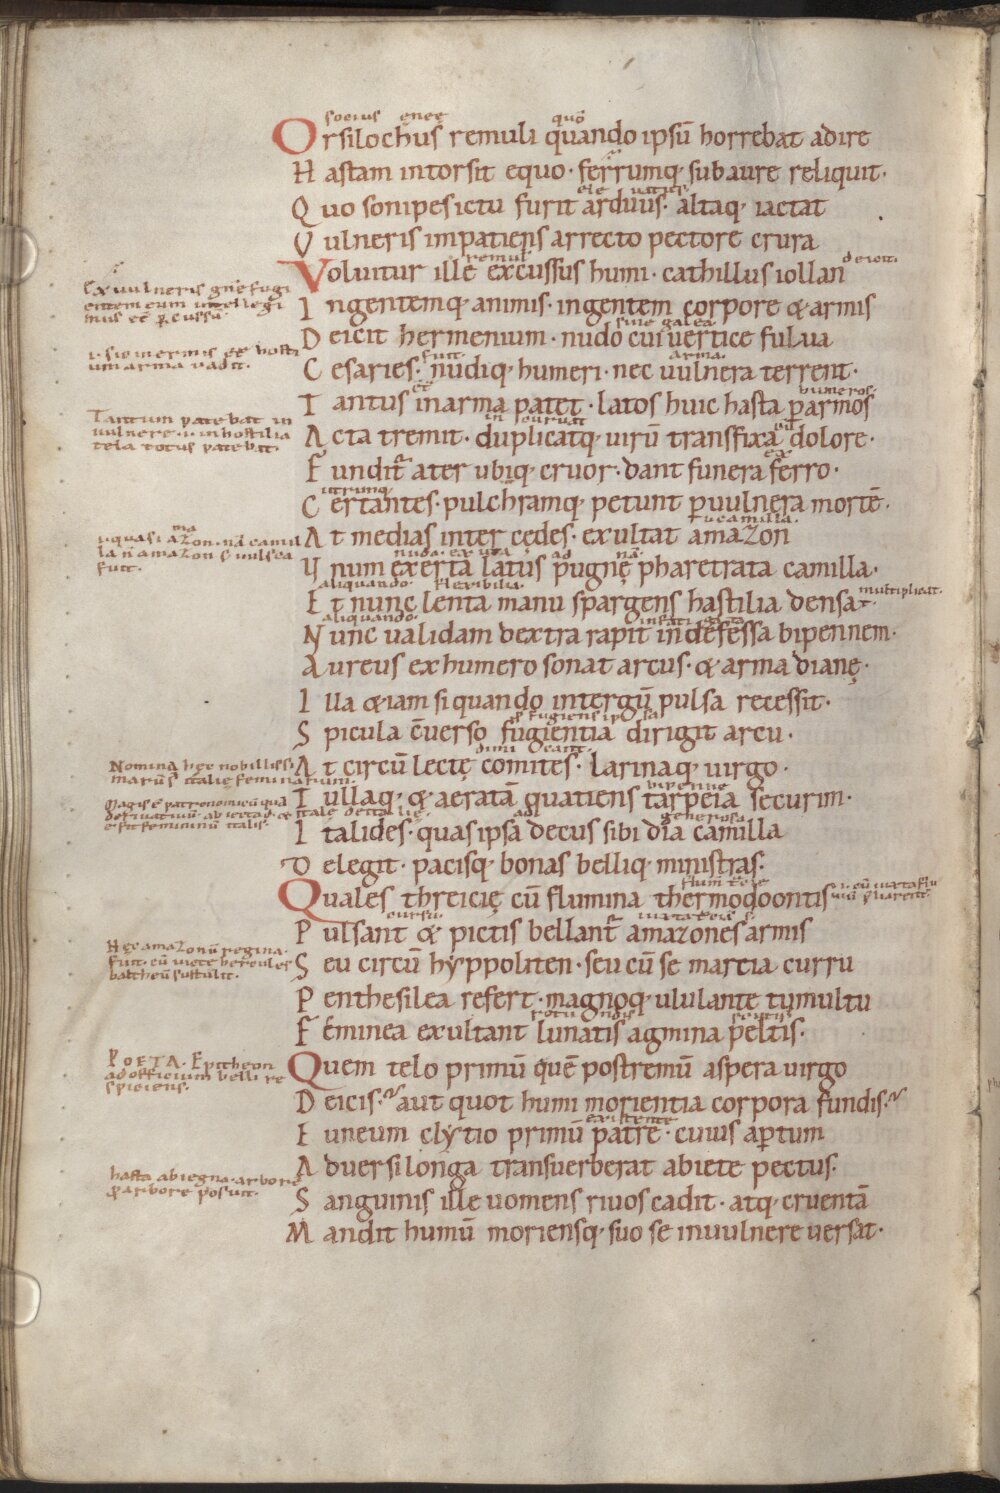 socius eneę quō
Orsilochus remuli quando ipsū horrebat adire
Hastam intorsit equo · ferrumq; sub aure reliquit ·
Quo sonipes ictu furit arduus · altaq; iactat
Vulneris impatiens arrecto pectore crura
remul' deicit
Voluitur ille excussus humi · cathillus iollan
Ingentemq; animis · ingentem corpore & armis
sine galea
Deicit hermenium · nudo cui uertice fulua
fuit arma
Cesaries · nudiq; humeri · nec uulnera terrent ·
humeros
Tantus in arma patet · latos huic hasta p armos
Acta tremit · duplicatq; uirū transfixa dolore ·
ex
Funditr ater ubiq; cruor · dant funera ferro ·
utrumq;
Certantes · pulchramq; petunt p uulnera mortē ·
camilla
At medias inter cędes · exultat amazon
nuda
Vnum exerta latus pugnę pharetrata camilla ·
aliquando flexibilia multiplicat
Et nunc lenta manu spargens hastilia densat ·
aliquando
Nunc ualidam dextra rapit indefessa bipennem ·
Aureus ex humero sonat arcus · & arma dianę ·
Illa & iam si quando in tergū pulsa recessit ·
Spicula cuerso fugientia dirigit arcu ·
At circū lectę comites · larinaq; uirgo ·
bipenne
Tullaq; & aeratā quatiens tarpeia securim ·
generosa
Italides · quas ipsa decus sibi dia camilla
Delegit · pacisq; bonas belliq; ministras ·
Quales threicię cū flumina thermodoontis
cursu
Pulsant & pictis bellantr amazones armis
Seu circū hyppoliten · seu cū se martia curru
Penthesilea refert · magnoq; ululante tumultu
Feminea exultant lunatis agmina peltis ·
Quem telo primū quē postremū aspera uirgo
Deicis · aut quot humi morientia corpora fundis ·
existente
Euneum clytio primū patre · cuius aptum
Aduersi longa transuerberat abiete pectus ·
Sanguinis ille uomens riuos cadit · atq; cruentā
Mandit humū moriensq; suo se in uulnere uersat ·
Ex uulneris
entem eum intellegi
mus
Tantum patebat in
uulnere · in hostilia
tela totus patebat ·
amazon · nā camil
la ñ amazon s; uulsca
fuit ·
Nomina hęc nobilissi
marū s italię feminarum ·
Hęc amazonū regina
fuit · cū uicte hercules
baltheū sustulit ·
POETA · Epitheon
ad officium belli re
spiciens ·
hasta abiegna · arbore
p arbore posuit ·